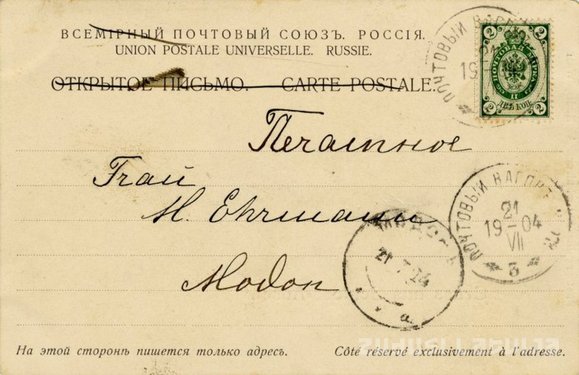 ВСЕМІРНЫЙ ПОЧТОВЫЙ СОЮЗЪ. РОССІЯ.
UNION POSTALE UNIVERSELLE. RUSSIE.
ОТКРЫТОЕ ПИСЬМО. — CARTE POSTALE.
ПОЧТОВЫЙ ВАГОНЪ
19
2 2
2 2
ДВѢ КОП.
Печатное
Frau
M. Ehrmann
Modon
ПОЧТОВЫЙ ВАГОНЪ
21
19 04
VII
3
21 7 04
На этой сторонѣ пишется только адресъ.
Côté réservé exclusivement à l'adresse.